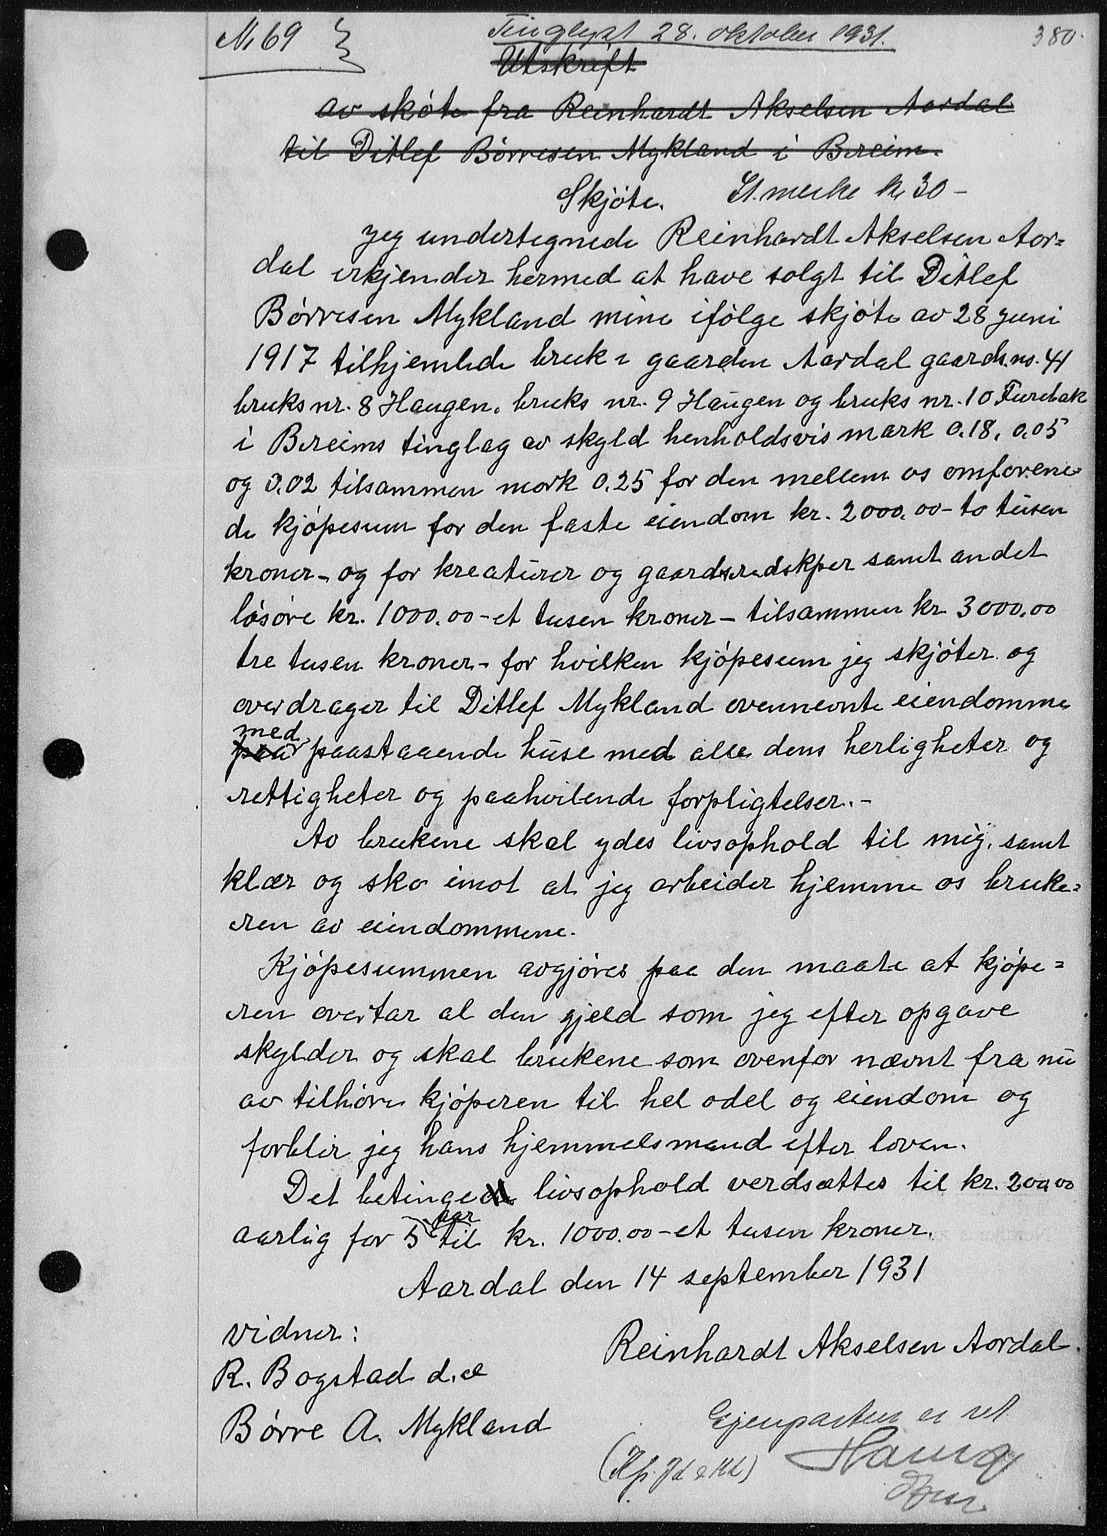 № 69
Tinglyst 28. oktober 1931.
380
Utskrift
av skøte fra Reinhardt Akselsen Aardal
til Ditlef Børresen Mykland i Breim.
Skjøte. St.merke kr 30 -
Jeg undertegnede Reinhardt Akselsen Aar=
dal erkjender hermed at have solgt til Ditlef
Børresen Mykland mine ifölge skjöte av 28 juni
1917 tilhjemlede bruk i gaarden Aardal gaards.nr. 41
bruks nr. 8 Haugen, bruks nr. 9 Haugen og bruks nr. 10 Furebak
i Breims tinglag av skyld henholdsvis mark 0.18, 0.05
og 0.02 tilsammen mark 0.25 for den mellem os omforene=
de kjöpesum for den faste eiendom kr. 2000.00 - to tusen
kroner - og for kreaturer og gaardsredskper samt andet
lösöre kr. 1000.00 - et tusen kroner - tilsammen kr 3000.00
tre tusen kroner - for hvilken kjöpesum jeg skjöter og
overdrager til Ditlef Mykland ovennevnte eiendomme
med
paa paastaaende huse med alle dens herligheter og
rettigheter og paahvilende forpligtelser. -
Av brukene skal ydes livsophold til mig, samt
klær og sko imot at jeg arbeider hjemme os bruke=
ren av eiendommene.
Kjöpesummen avgjöres paa den maate at kjöpe=
ren overtar al den gjeld som jeg efter opgave
skylder og skal brukene som ovenfor nævnt fra nu
av tilhöre kjöperen til hel odel og eiendom og
forblir jeg hans hjemmelsmand efter loven.
Det betingede livsophold verdsættes til kr. 200.00
aarlig for 5 aar til kr. 1000.00 - et tusen kroner.
Aardal den 14 september 1931
Vidner:
Reinhardt Akselsen Aardal.
R. Bogstad d.e
Børre A. Mykland
Gjenparten er ret
Haug